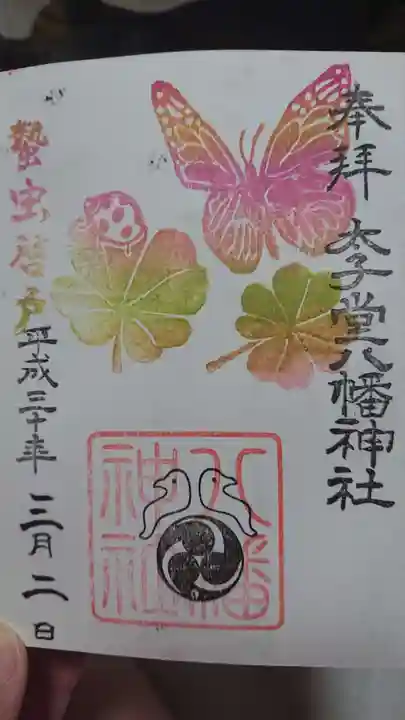 奉拝 太子堂八幡神社
八幡
神社
蟄虫啓戸
平成三十年 三月二日